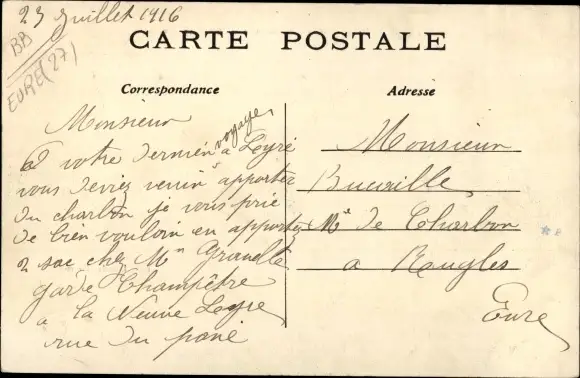 23 Juillet 1916
BB
EURE (27)
CARTE POSTALE
Correspondance
Adresse
Monsieur
à votre dernier voyage à Leyre
vous deviez venir apporter
du charbon je vous prie
de bien vouloir en apporter
2 sac chez Mr
garde Champêtre
a la Neuve Leyre
rue du
Monsieur
Md de Charbon
a Rugles
Eure